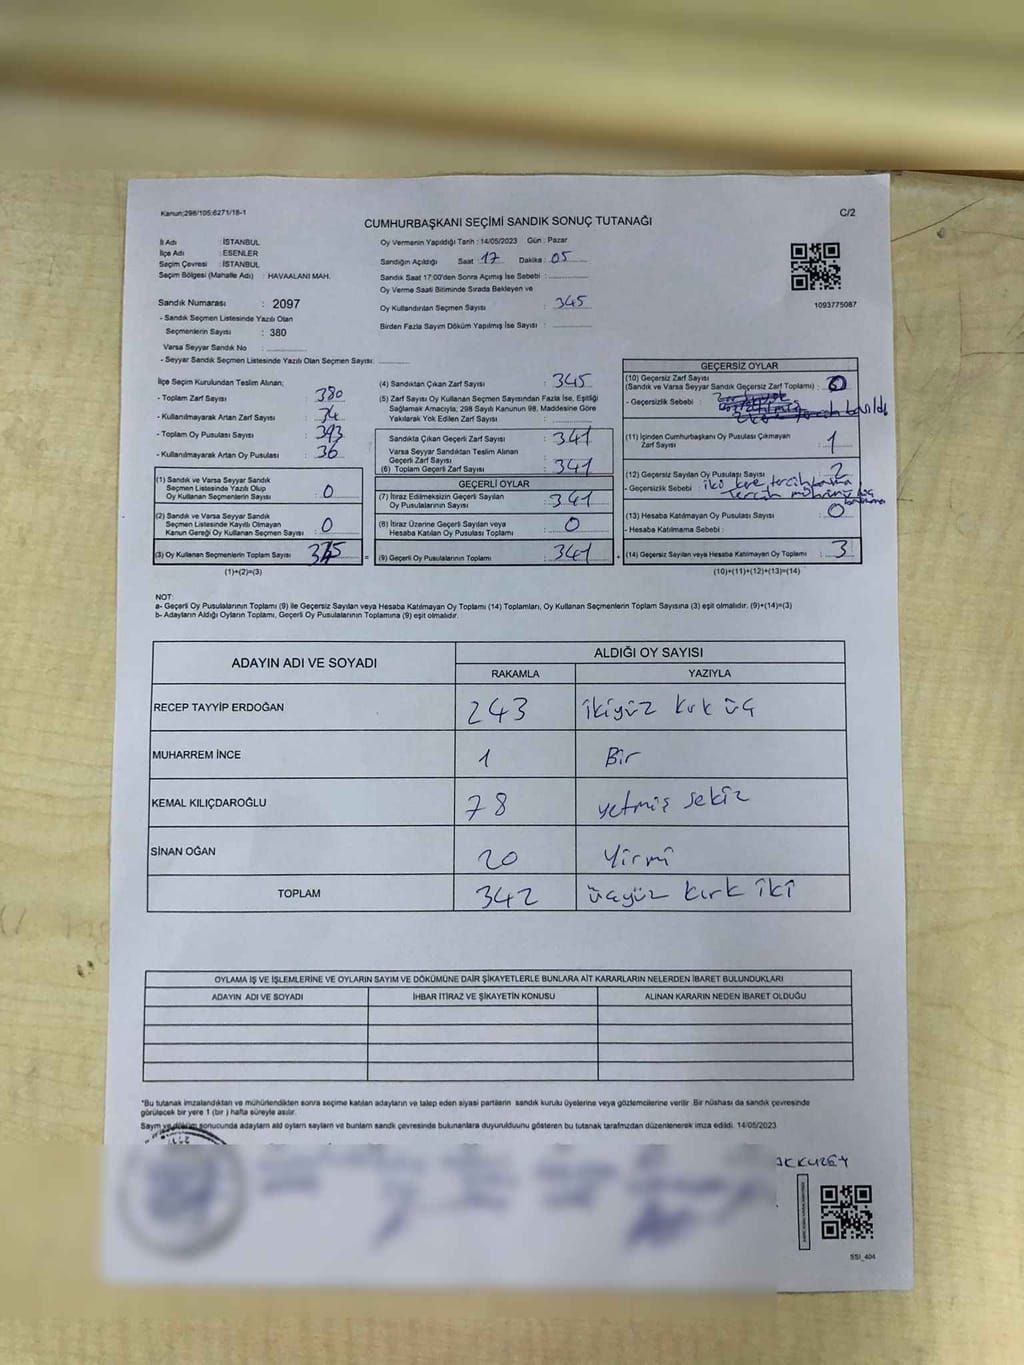 Kanun;298/105;6271/18-1
C/2
CUMHURBAŞKANI SEÇİMİ SANDIK SONUÇ TUTANAĞI
İl Adı : İSTANBUL
İlçe Adı : ESENLER
Seçim Çevresi : İSTANBUL
Seçim Bölgesi (Mahalle Adı) : HAVAALANI MAH.
Sandık Numarası : 2097
- Sandık Seçmen Listesinde Yazılı Olan
Seçmenlerin Sayısı : 380
Varsa Seyyar Sandık No :
- Seyyar Sandık Seçmen Listesinde Yazılı Olan Seçmen Sayısı:
Oy Vermenin Yapıldığı Tarih : 14/05/2023 Gün : Pazar
Sandığın Açıldığı Saat : 17 Dakika : 05
Sandık Saat 17:00'den Sonra Açımış İse Sebebi :
Oy Verme Saati Bitiminde Sırada Bekleyen ve
Oy Kullandırılan Seçmen Sayısı : 345
Birden Fazla Sayım Döküm Yapılmış İse Sayısı :
1093775087
İlçe Seçim Kurulundan Teslim Alınan;
- Toplam Zarf Sayısı : 380
- Kullanılmayarak Artan Zarf Sayısı : 34
- Toplam Oy Pusulası Sayısı : 393
- Kullanılmayarak Artan Oy Pusulası : 36
(1) Sandık ve Varsa Seyyar Sandık
Seçmen Listesinde Yazılı Olup
Oy Kullanan Seçmenlerin Sayısı : 0
(2) Sandık ve Varsa Seyyar Sandık
Seçmen Listesinde Kayıtlı Olmayan
Kanun Gereği Oy Kullanan Seçmen Sayısı : 0
(3) Oy Kullanan Seçmenlerin Toplam Sayısı : 345 =
(1)+(2)=(3)
(4) Sandıktan Çıkan Zarf Sayısı : 345
(5) Zarf Sayısı Oy Kullanan Seçmen Sayısından Fazla İse, Eşitliği
Sağlamak Amacıyla; 298 Sayılı Kanunun 98. Maddesine Göre
Yakılarak Yok Edilen Zarf Sayısı :
Sandıkta Çıkan Geçerli Zarf Sayısı : 341
Varsa Seyyar Sandıktan Teslim Alınan
Geçerli Zarf Sayısı :
(6) Toplam Geçerli Zarf Sayısı : 341
GEÇERLİ OYLAR
(7) İtiraz Edilmeksizin Geçerli Sayılan
Oy Pusulalarının Sayısı : 341
(8) İtiraz Üzerine Geçerli Sayılan veya
Hesaba Katılan Oy Pusulası Toplamı : 0
(9) Geçerli Oy Pusulalarının Toplamı : 341 +
GEÇERSİZ OYLAR
(10) Geçersiz Zarf Sayısı
(Sandık ve Varsa Seyyar Sandık Geçersiz Zarf Toplamı) : 0
- Geçersizlik Sebebi :
(11) İçinden Cumhurbaşkanı Oy Pusulası Çıkmayan
Zarf Sayısı : 1
(12) Geçersiz Sayılan Oy Pusulası Sayısı : 2
- Geçersizlik Sebebi : iki kere tercih basma
Tercih mührü hiç
basmama
(13) Hesaba Katılmayan Oy Pusulası Sayısı : 0
- Hesaba Katılmama Sebebi :
(14) Geçersiz Sayılan veya Hesaba Katılmayan Oy Toplamı : 3
(10)+(11)+(12)+(13)=(14)
NOT:
a- Geçerli Oy Pusulalarının Toplamı (9) ile Geçersiz Sayılan veya Hesaba Katılmayan Oy Toplamı (14) Toplamları, Oy Kullanan Seçmenlerin Toplam Sayısına (3) eşit olmalıdır. (9)+(14)=(3)
b- Adayların Aldığı Oyların Toplamı, Geçerli Oy Pusulalarının Toplamına (9) eşit olmalıdır.
ADAYIN ADI VE SOYADI
ALDIĞI OY SAYISI
RAKAMLA YAZIYLA
RECEP TAYYİP ERDOĞAN 243 ikiyüz kırk üç
MUHARREM İNCE 1 Bir
KEMAL KILIÇDAROĞLU 78 yetmiş sekiz
SİNAN OĞAN 20 Yirmi
TOPLAM 342 üçyüz kırk iki
OYLAMA İŞ VE İŞLEMLERİNE VE OYLARIN SAYIM VE DÖKÜMÜNE DAİR ŞİKAYETLERLE BUNLARA AİT KARARLARIN NELERDEN İBARET BULUNDUKLARI
ADAYIN ADI VE SOYADI İHBAR İTİRAZ VE ŞİKAYETİN KONUSU ALINAN KARARIN NEDEN İBARET OLDUĞU
*Bu tutanak imzalandıktan ve mühürlendikten sonra seçime katılan adayların ve talep eden siyasi partilerin sandık kurulu üyelerine veya gözlemcilerine verilir .Bir nüshası da sandık çevresinde
görülecek bir yere 1 (bir ) hafta süreyle asılır.
Sayım ve döküm sonucunda adayların aldı oyların sayıların ve bunların sandık çevresinde bulunanlara duyurulduunu gösteren bu tutanak tarafımızdan düzenlenerek imza edildi. 14/05/2023
SSI_404